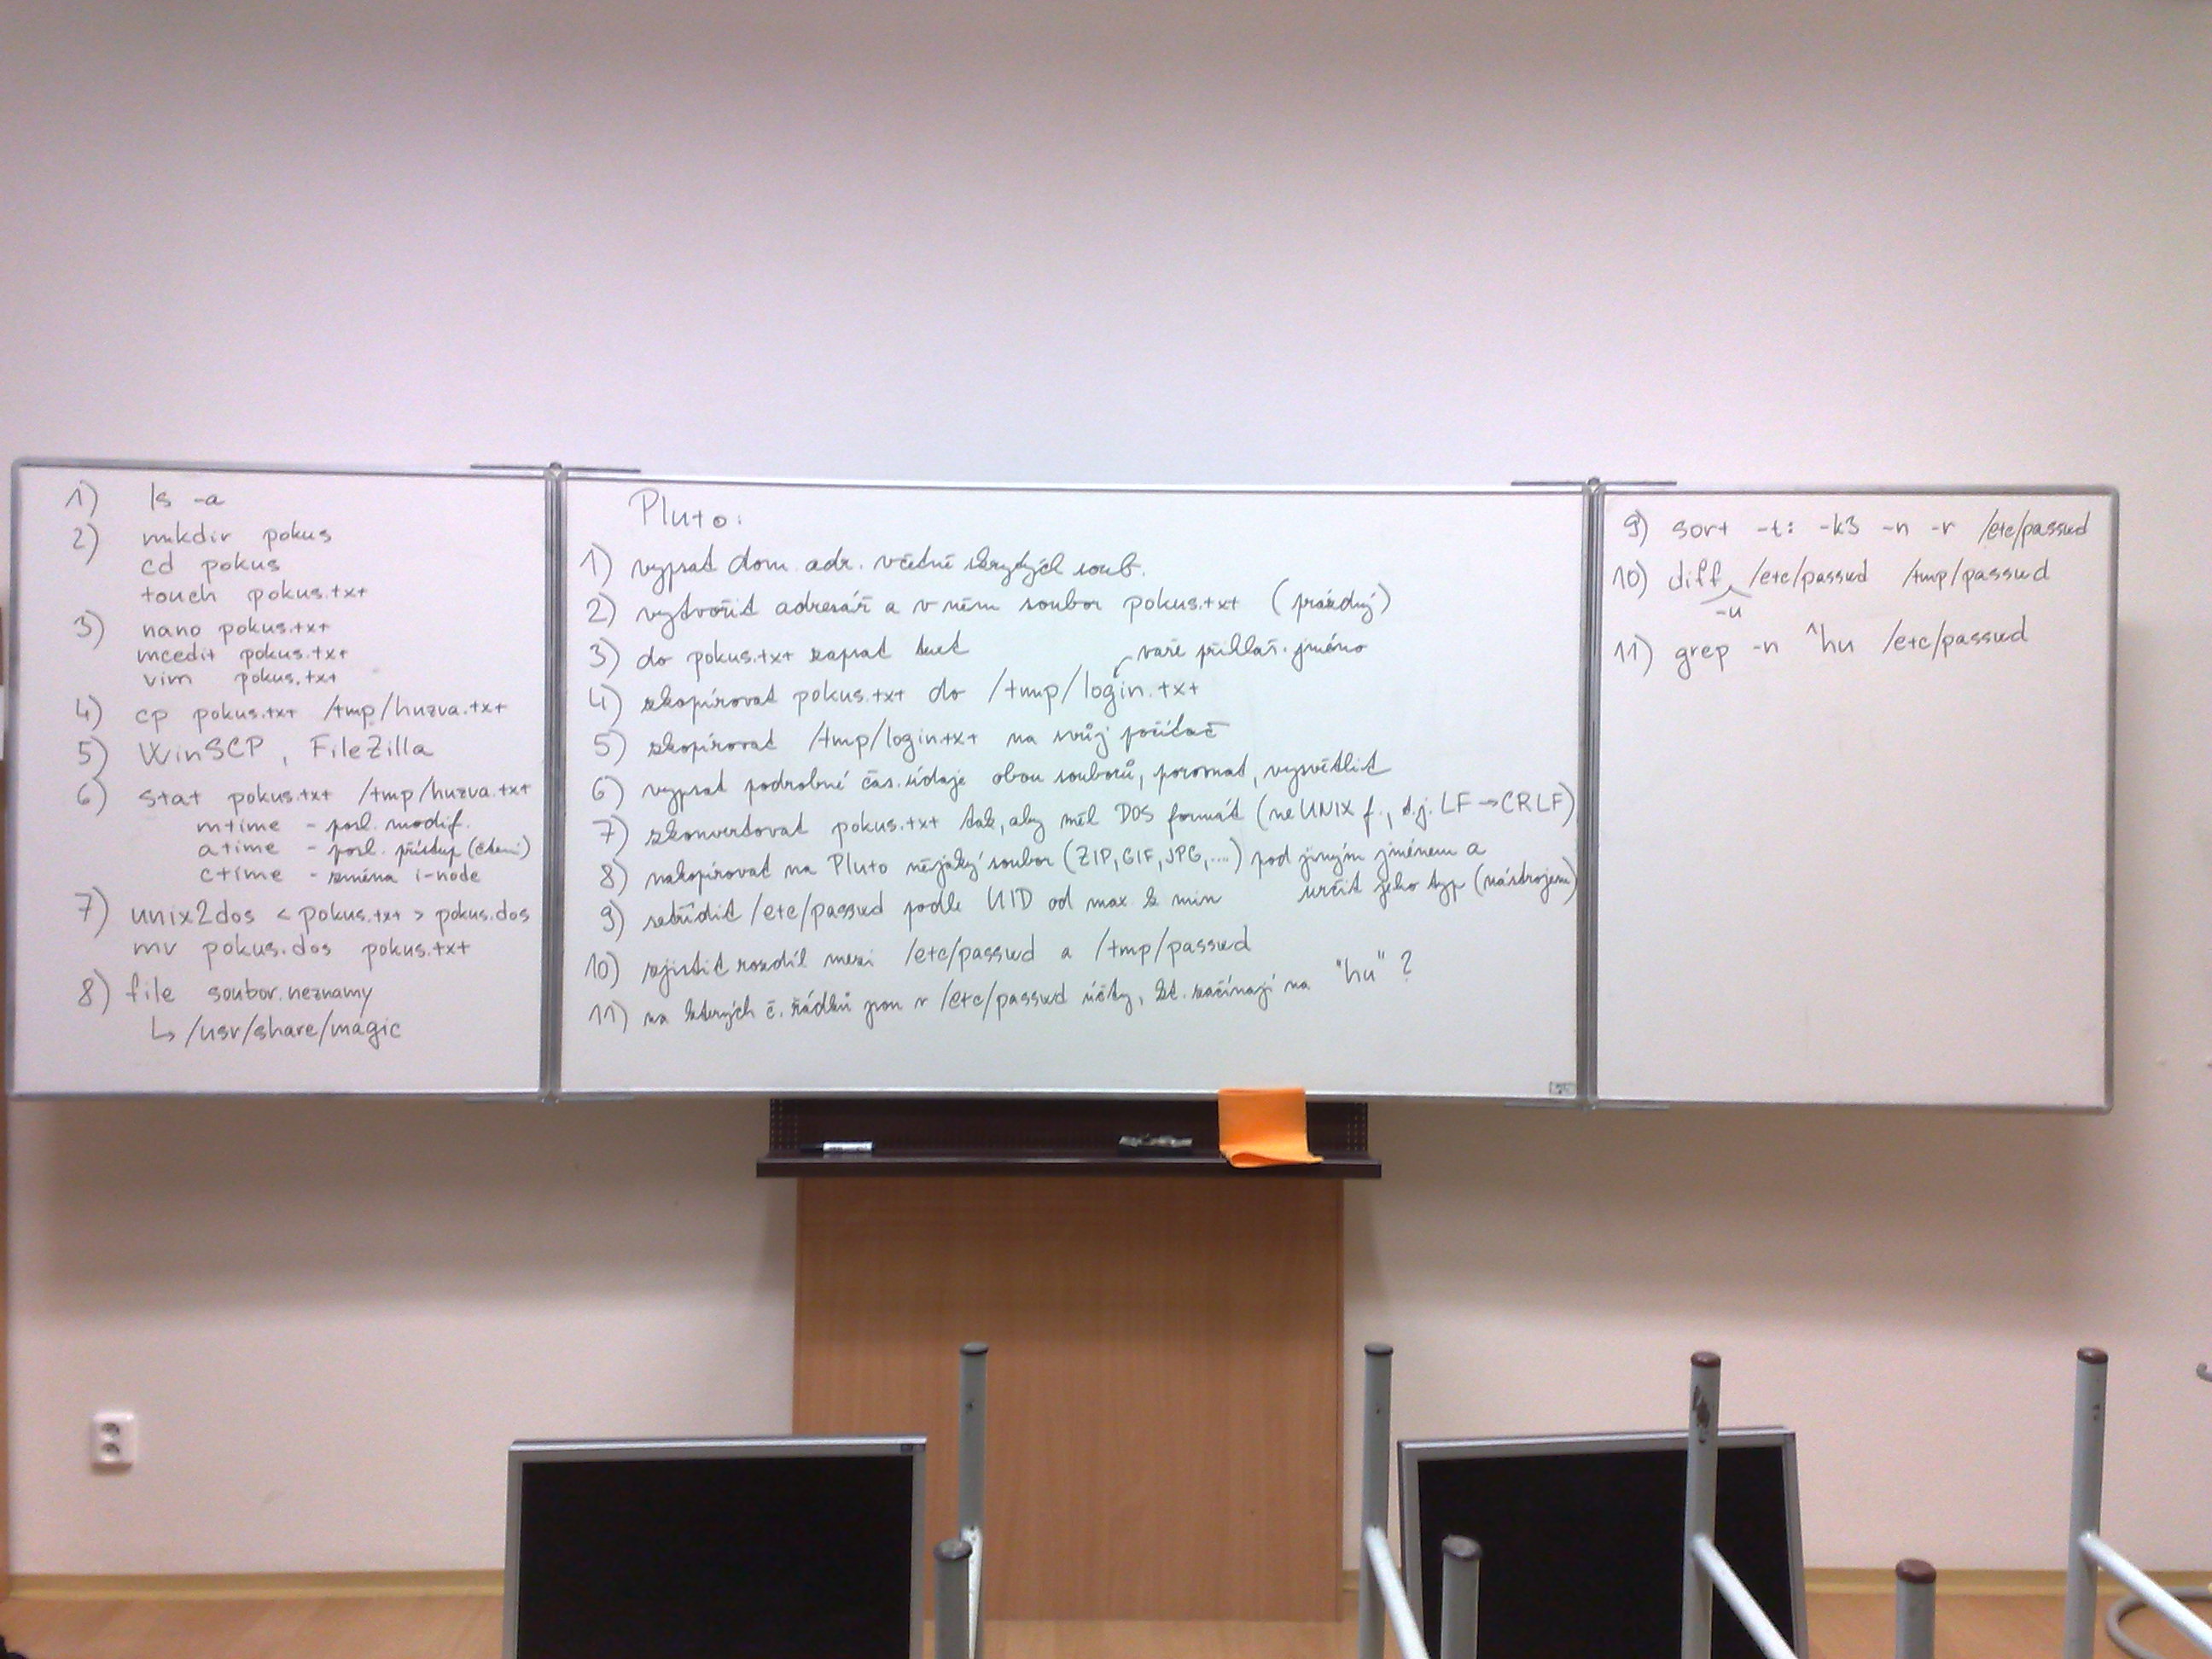 1) ls -a
2) mkdir pokus
cd pokus
touch pokus.txt
3) nano pokus.txt
mcedit pokus.txt
vim pokus.txt
4) cp pokus.txt /tmp/huzva.txt
5) WinSCP, FileZilla
6) stat pokus.txt /tmp/huzva.txt
mtime - posl. modif.
atime - posl. přístup (čtení)
ctime - změna i-node
7) unix2dos < pokus.txt > pokus.dos
mv pokus.dos pokus.txt
8) file soubor.neznamy
↳ /usr/share/magic
Pluto:
1) vypsat dom. adr. včetně skrytých soub.
2) vytvořit adresář a v něm soubor pokus.txt (prázdný)
3) do pokus.txt zapsat text
vaše přihlaš. jméno
4) zkopírovat pokus.txt do /tmp/login.txt
5) zkopírovat /tmp/login.txt na svůj počítač
6) vypsat podrobné čas. údaje obou souborů, porovnat, vysvětlit
7) zkonvertovat pokus.txt tak, aby měl DOS formát (ne UNIX f., t.j. LF → CRLF)
8) nakopírovat na Pluto nějaký soubor (ZIP, GIF, JPG, ...) pod jiným jménem a
určit jeho typ (nástrojem)
9) setřídit /etc/passwd podle UID od max k min
10) zjistit rozdíl mezi /etc/passwd a /tmp/passwd
11) na kterých č. řádků jsou v /etc/passwd účty, kt. začínají na "hu" ?
9) sort -t: -k3 -n -r /etc/passwd
10) diff /etc/passwd /tmp/passwd
-u
11) grep -n ^hu /etc/passwd